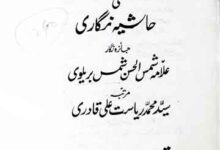 کی
حاشیہ نگاری
جائزہ نگار
علامہ شمس الحسن شمس بریلوی
مرتبہ
سید محمد ریاست علی قادری